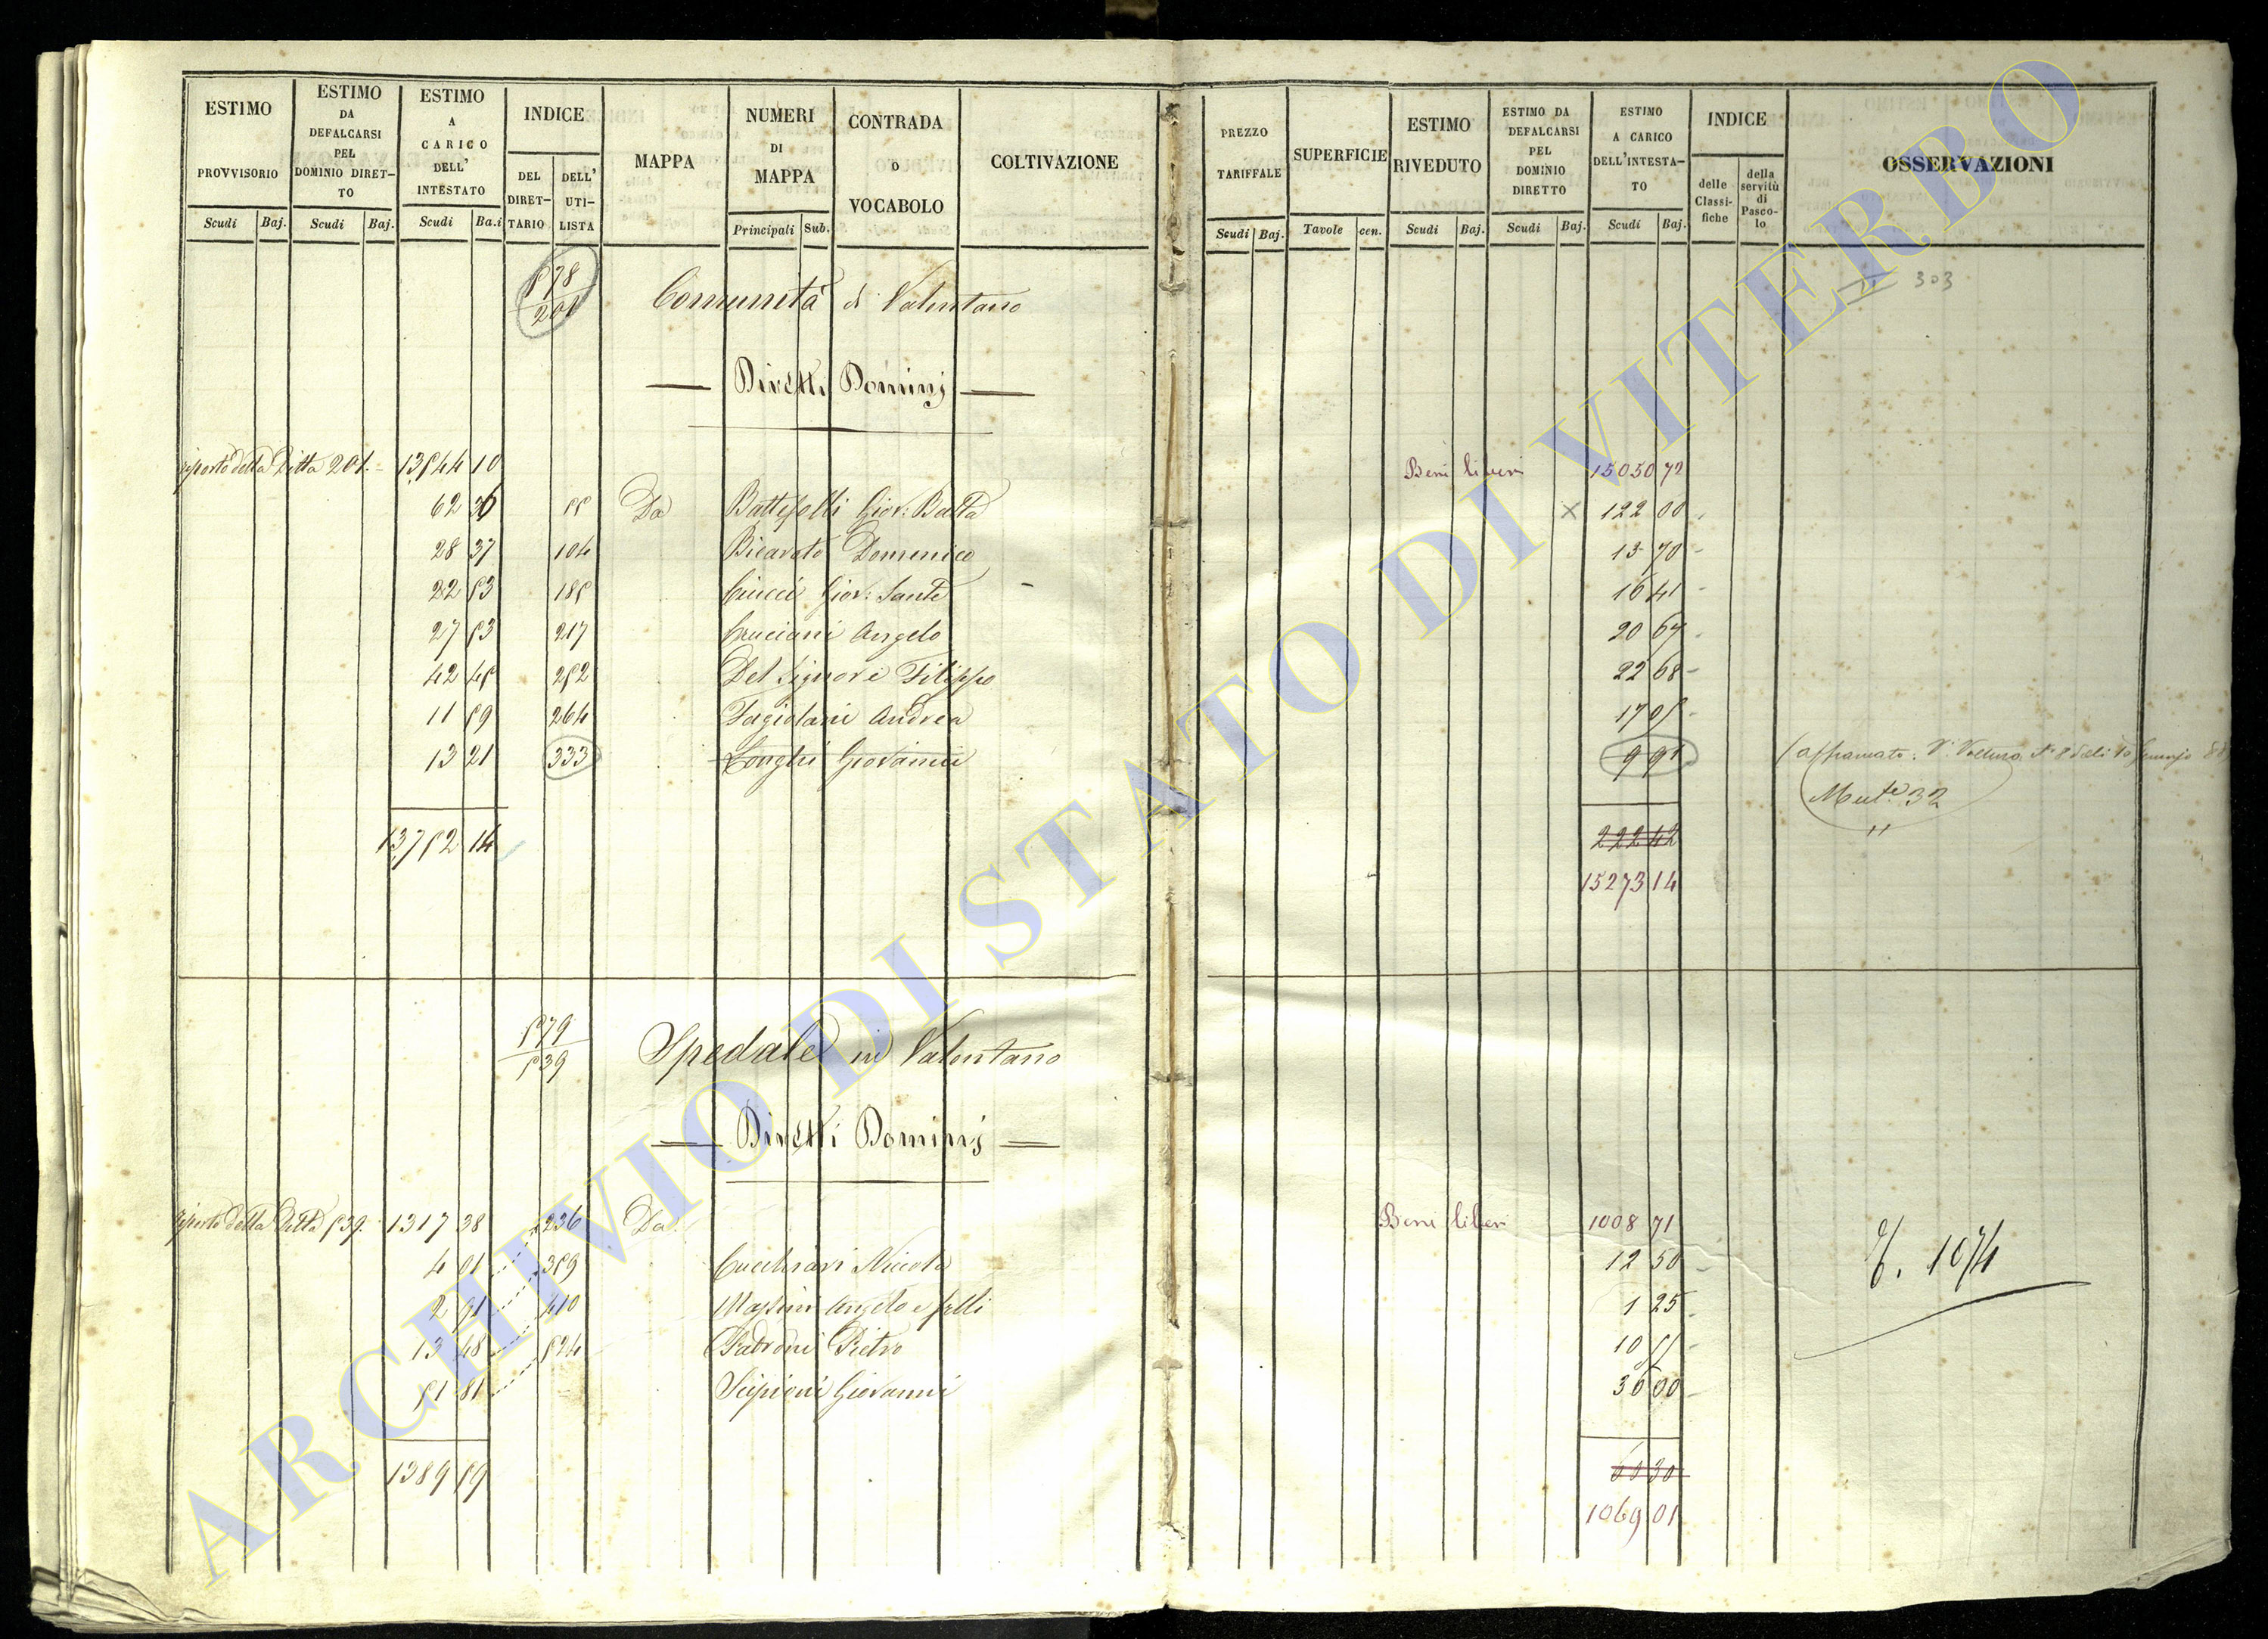 ESTIMO PROVVISORIO
ESTIMO DA DEFALCARSI PEL DOMINIO DIRET-TO
ESTIMO A CARICO DELL' INTESTATO
INDICE
DEL DIRET-TARIO
DELL' UTI-LISTA
MAPPA
NUMERI DI MAPPA
CONTRADA O VOCABOLO
COLTIVAZIONE
Scudi Baj. Scudi Baj. Scudi Ba.i Principali Sub.
PREZZO TARIFFALE
SUPERFICIE
ESTIMO RIVEDUTO
ESTIMO DA DEFALCARSI PEL DOMINIO DIRETTO
ESTIMO A CARICO DELL'INTESTA-TO
INDICE
delle Classi-fiche
della servitù di Pasco-lo
OSSERVAZIONI
Scudi Baj. Tavole cen. Scudi Baj. Scudi Baj. Scudi Baj.
578
201
Comunità di Valentano
303
Diretti Dominj
riporto della Ditta 201. 13544 10 Beni liberi 15050 72
62 36 55 Da Battifolli Giov: Batta × 122 00
28 37 104 Bicarato Domenico 13 70
22 53 185 Ciucci Giov: Sante 16 41
27 53 217 Cruciani Angelo 20 67
42 45 252 Del Signore Filippo 22 68
11 59 264 Fagiolani Andrea 17 05
13 21 333 Longhi Giovanni 9 91
Mut.e 32
13752 14 222 42
15273 14
579
539
Spedale in Valentano
Diretti Dominj
riporto della Ditta 539. 1317 38 236 Da Beni liberi 1008 71
4 01 359 Cucchiari Niccola 12 50
2 91 410 Massini Angelo e flli 1 25
13 48 524 Padroni Pietro 10 55
51 81 Scipioni Giovanni 36 00
1389 59 60 30
1069 01
1074
ARCHIVIO DI STATO DI VITERBO